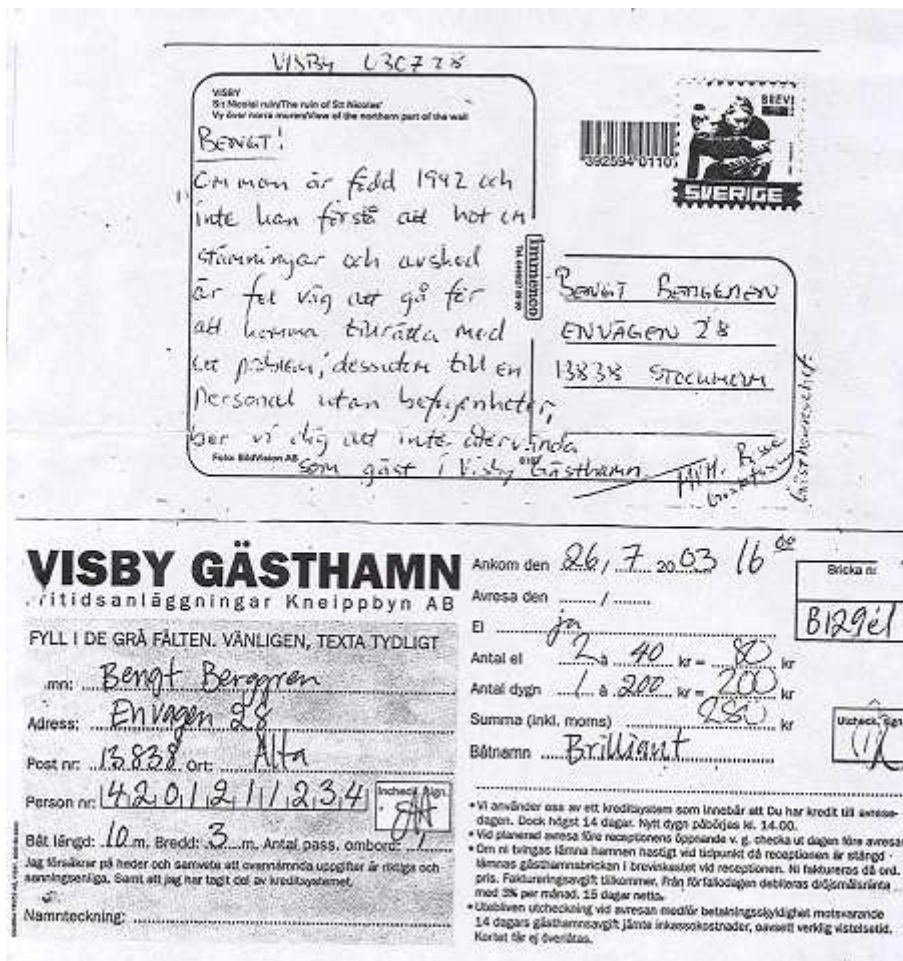 VISBY 030728
VISBY
S:t Nicolai ruin/The ruin of S:t Nicolas'
Vy över norra muren/View of the northern part of the wall
BENGT!
Om man är född 1942 och
inte kan förstå att hot om
stämningar och avsked
är fel väg att gå för
att komma tillrätta med
ett problem, dessutom till en
personal utan befogenheter,
ber vi dig att inte återvända
som gäst i Visby Gästhamn.
Foto: BildVision AB
MVH.
Gästhamnschef
392594 0110
BREV
SVERIGE
BENGT BERGGREN
ENVÄGEN 28
13838 STOCKHOLM
VISBY GÄSTHAMN
ritidsanläggningar Kneippbyn AB
FYLL I DE GRÅ FÄLTEN. VÄNLIGEN, TEXTA TYDLIGT
mn: Bengt Berggren
Adress: Envägen 28
Post nr: 13838 Ort: Älta
Person nr: 4 2 0 1 2 1 1 2 3 4
Incheck. Sign.
Båt längd: 10 m. Bredd: 3 m. Antal pass. ombord: 1
Jag försäkrar på heder och samvete att ovannämnda uppgifter är riktiga och
sanningsenliga. Samt att jag har tagit del av kreditsystemet.
Namnteckning:
Ankom den 26/7 2003 16 00
Avresa den /
El ja
Antal el 2 à 40 kr = 80 kr
Antal dygn 1 à 200 kr = 200 kr
Summa (inkl. moms) 280 kr
Båtnamn Brilliant
Bricka nr
B129él
Utcheck. Sign.
• Vi använder oss av ett kreditsystem som innebär att Du har kredit till avrese-
dagen. Dock högst 14 dagar. Nytt dygn påbörjas kl. 14.00.
• Vid planerad avresa före receptionens öppnande v. g. checka ut dagen före avresan
• Om ni tvingas lämna hamnen hastigt vid tidpunkt då receptionen är stängd -
lämnas gästhamnsbrickan i brevinkastet vid receptionen. Ni faktureras då ord.
pris. Faktureringsavgift tillkommer. Från förfallodagen debiteras dröjsmålsränta
med 3% per månad. 15 dagar netto.
• Utebliven utcheckning vid avresan medför betalningsskyldighet motsvarande
14 dagars gästhamnsavgift jämte inkassokostnader, oavsett verklig vistelsetid.
Kortet får ej överlåtas.